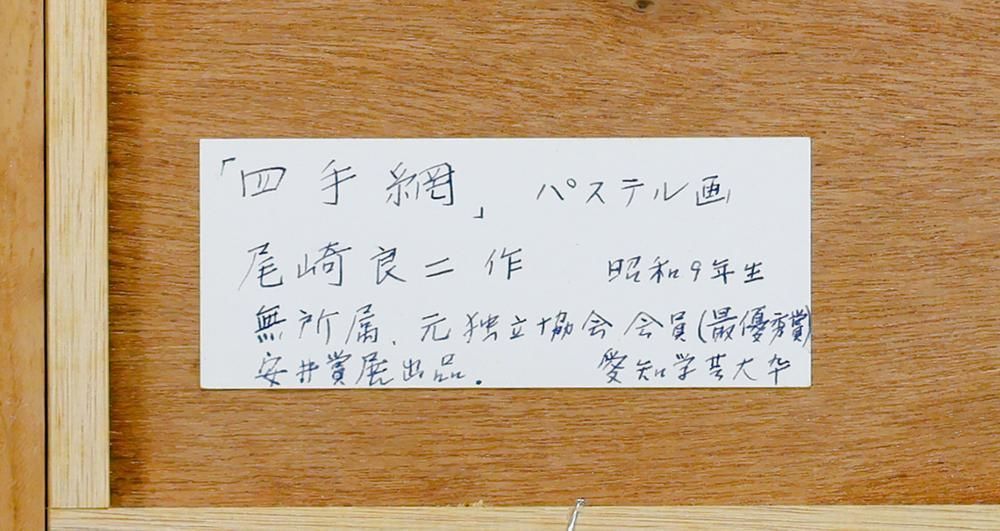 「四手網」 パステル画
尾崎良二作 昭和9年生
無所属、元独立協会会員(最優秀賞)
安井賞展出品. 愛知学芸大卆